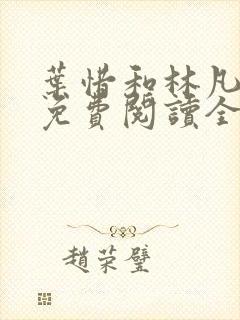 葉惜和林凡
免費閱讀全
趙荣璧